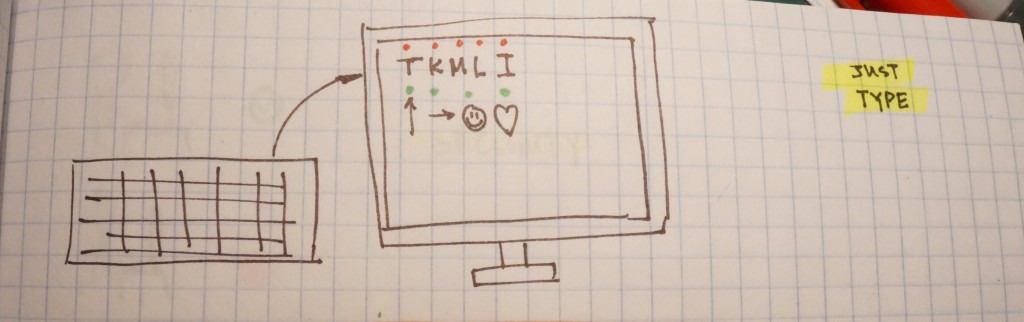 T K M L I
↑ → ☺ ♡
JUST
TYPE